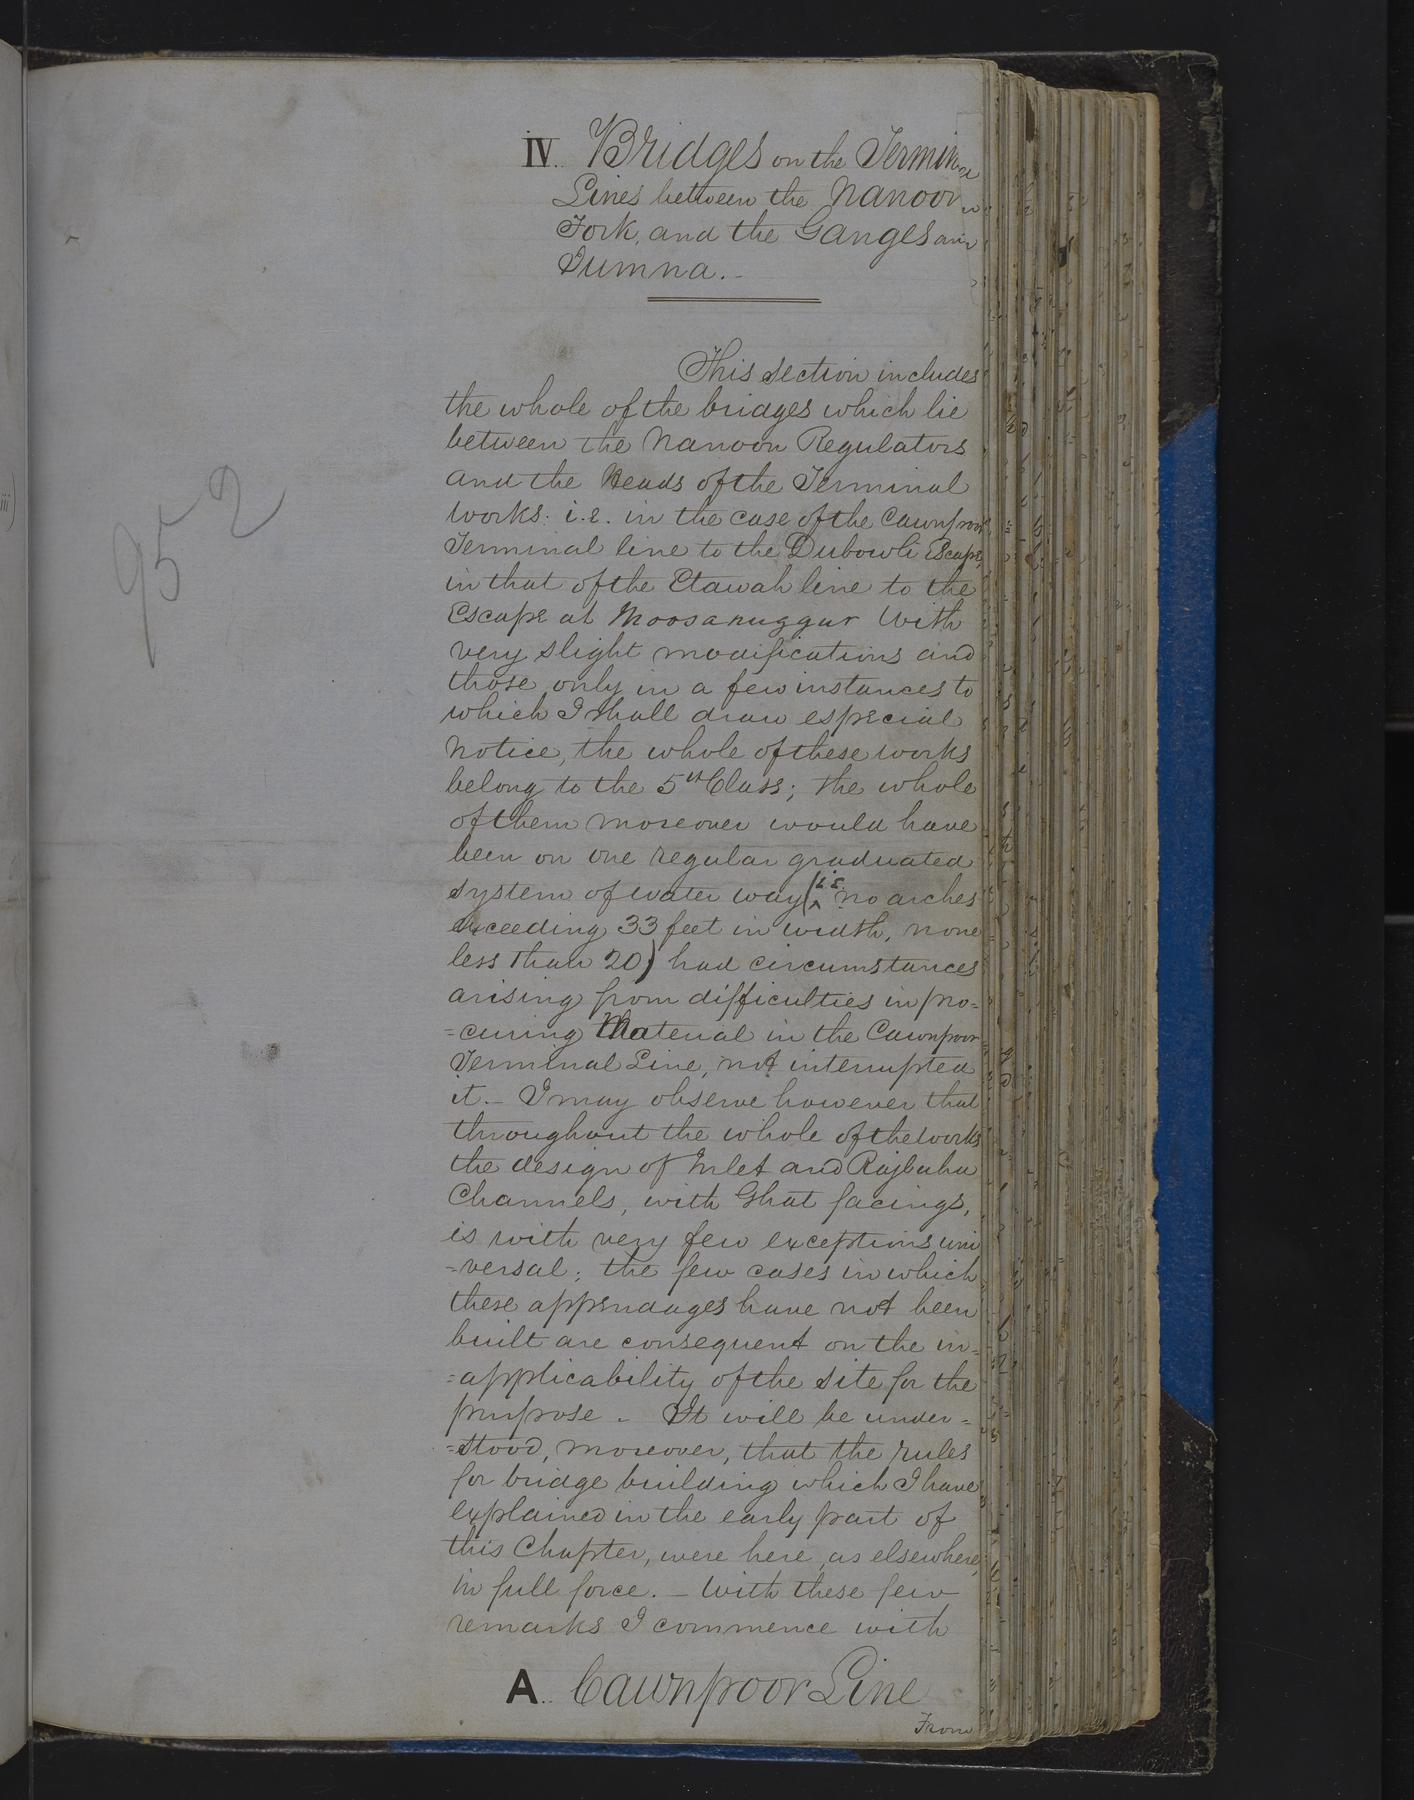 IV.. Bridges on the Terminal
Lines between the Nanoon
Fork, and the Ganges and
Jumna.-
952
This section includes
the whole of the bridges which lie
between the Nanoon Regulators
and the Heads of the Terminal
works: i.e. in the case of the Cawnpoor
Terminal line to the Dubowli Escape,
in that of the Etawah line to the
Escape at Moosanuggur With
very slight modifications and
those only in a few instances to
which I shall draw especial
notice, the whole of these works
belong to the 5th Class; the whole
of them moreover would have
been on one regular graduated
system of water way (i.e. no arches
exceeding 33 feet in width, none
less than 20) had circumstances
arising from difficulties in pro=
=curing Material in the Cawnpoor
Terminal Line, not interrupted
it.- I may observe however that
throughout the whole of the works
the design of Inlet and Rajbuha
Channels, with Ghat facings,
is with very few exceptions uni
=versal; the few cases in which
these appendages have not been
built are consequent on the in=
=applicability of the site for the
purpose - It will be under=
=stood, moreover, that the rules
for bridge building which I have
explained in the early part of
this Chapter, were here, as elsewhere,
in full force.- With these few
remarks I commence with
A.. Cawnpoor Line
From